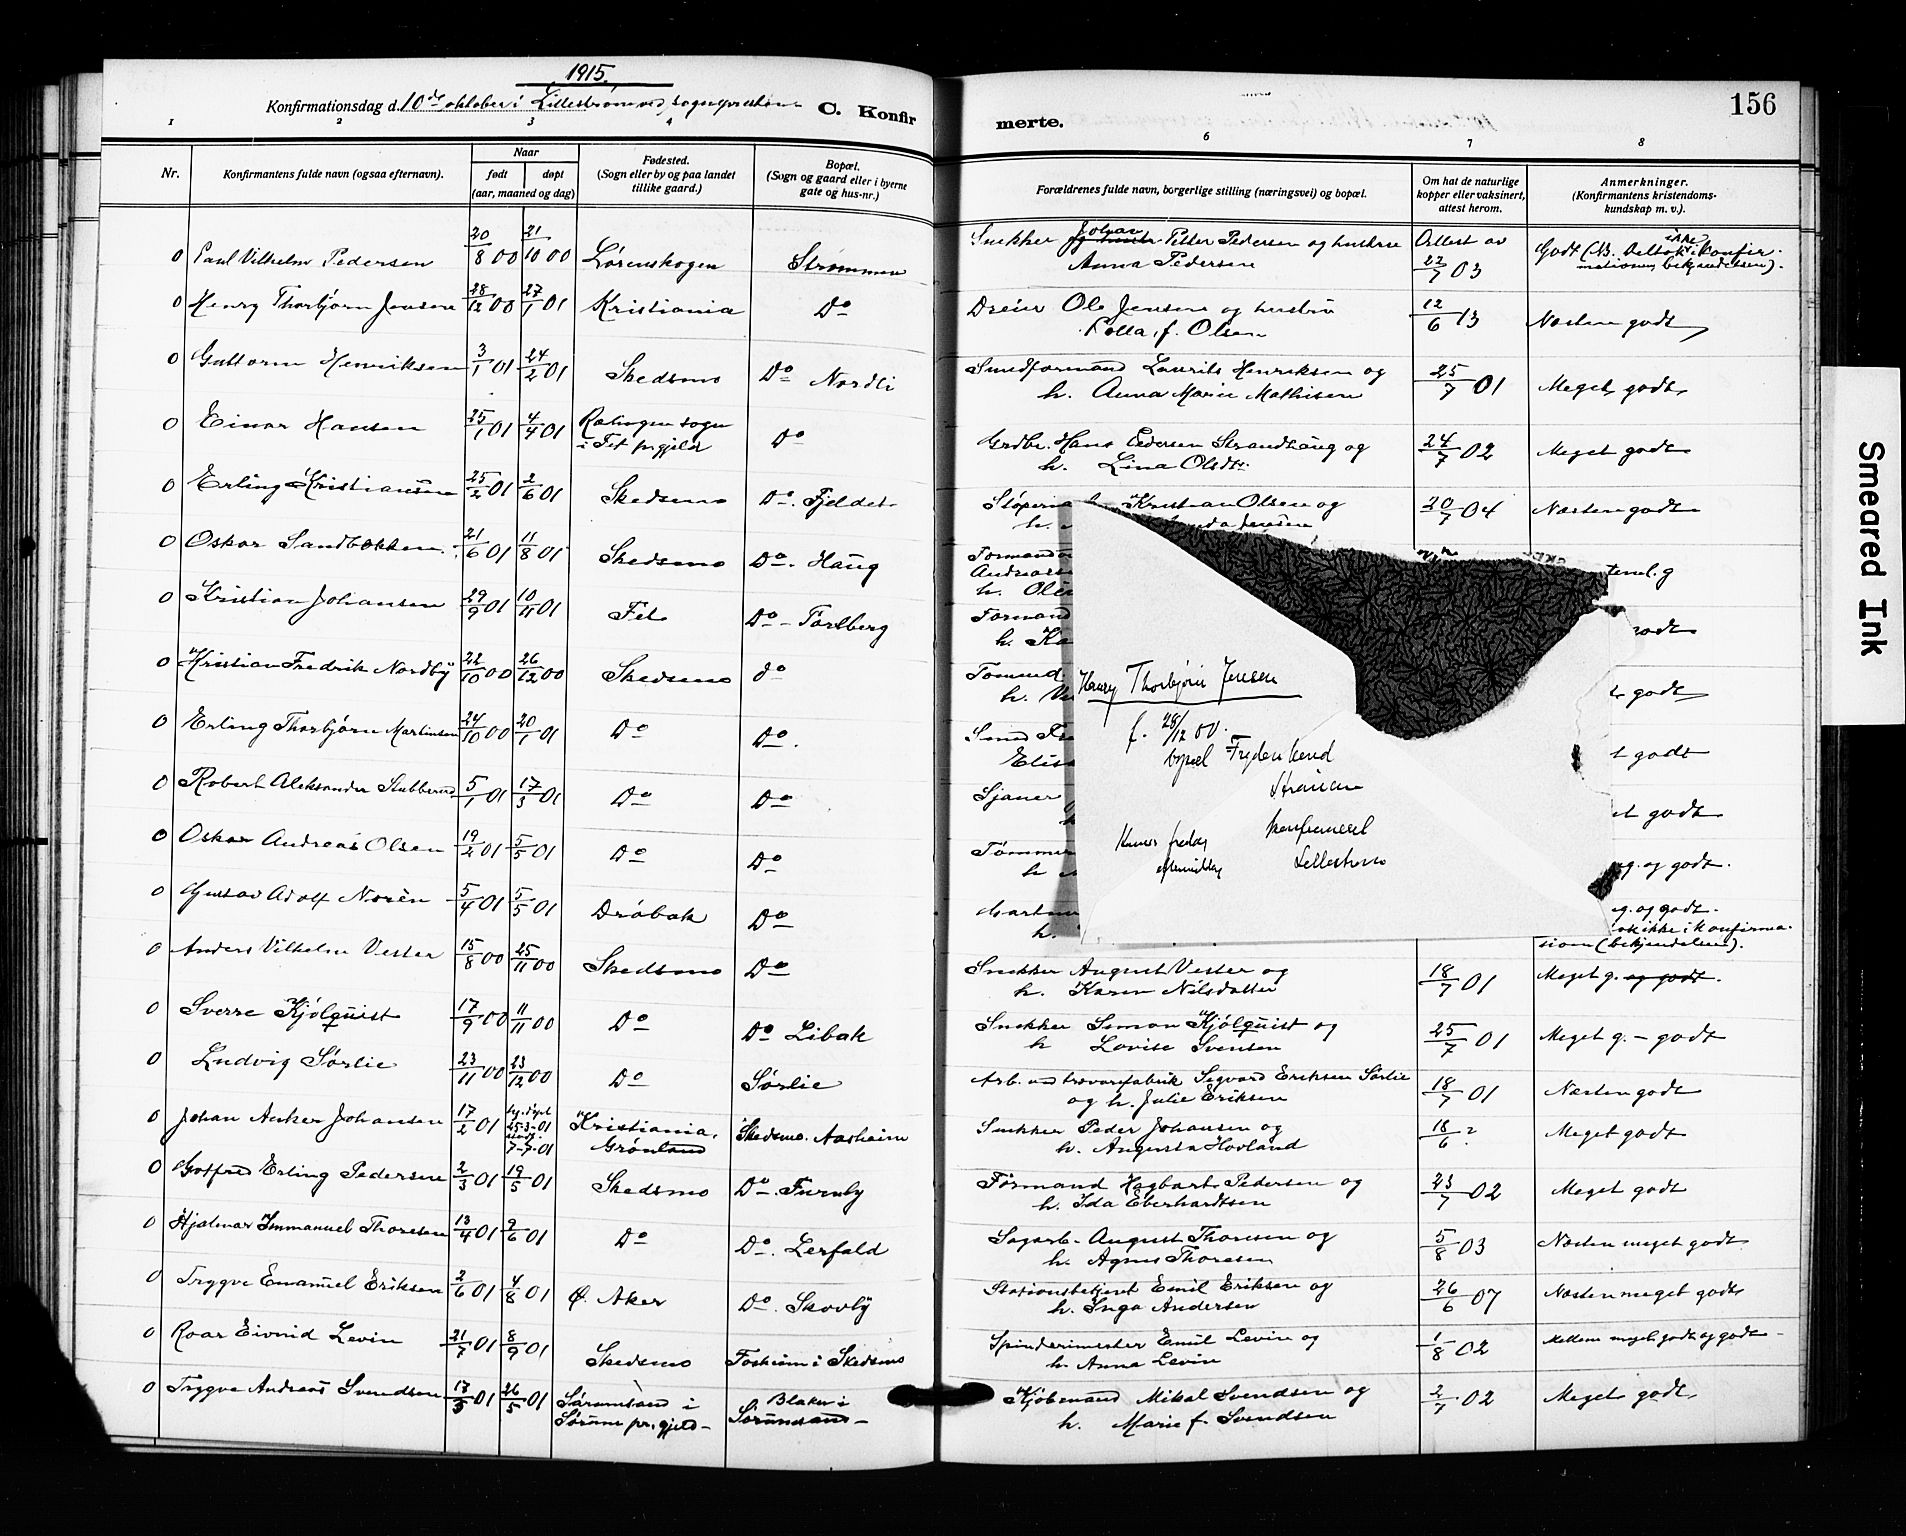 1915.
Konfirmationsdag d. 10de oktober i Lillestrøm ved sognepresten
C. Konfir
merte.
156
1 2 3 4 6 7 8
Nr.
Konfirmantens fulde navn (ogsaa efternavn).
Naar
født døpt
(aar, maaned og dag)
Fødested.
(Sogn eller by og paa landet
tillike gaard.)
Bopæl.
(Sogn og gaard eller i byerne
gate og hus-nr.)
Forældrenes fulde navn, borgerlige stilling (næringsvei) og bopæl.
Om hat de naturlige
kopper eller vaksinert,
attest herom.
Anmerkninger.
(Konfirmantens kristendoms-
kundskap m. v.).
0 Paul Vilhelm Pedersen 20/8 00 21/10 00 Lørenskogen Strømmen
Snekker Johan Petter Pedersen og hustru Attest av Godt (NB. Deltok ikke i konfir-
Anna Pedersen 22/7 03 mationen bekjendelsen).
0 Henry Thorbjørn Jensen 28/12 00 27/1 01 Kristiania Do
Dreier Ole Jensen og hustru 12/6 13 Næsten godt
f. Olsen
0 Guttorm Henriksen 3/1 01 24/2 01 Skedsmo Do Nordli
Smedformand Laurits Henriksen og 25/7 01 Meget godt
h. Anna Marie Mathisen
0 Einar Hansen 25/1 01 4/4 01 Rælingen sogn
i Fet pr.gjeld Do
Grdbr. Hans Pedersen Strandhaug og 24/7 02 Meget godt
h. Lina Olsdtr.
0 Erling Kristiansen 25/2 01 2/6 01 Skedsmo Do. Fjeldet
Støperia Kristian Olsen og 20/7 04 Næsten godt
h. Jensen
0 Oskar Sandbækken 21/6 01 11/8 01 Skedsmo Do. Haug
Formand
Andreas
h. Ols
tml. g
0 Kristian Johansen 29/9 01 10/11 01 Fet Do - Torlberg
Formand
h. Ka
godt
0 Kristian Fredrik Nordby 22/10 00 26/12 00 Skedsmo do
Tømmd.
h.
t godt
0 Erling Thorbjørn Martinsen 24/10 00 20/1 01 Do Do.
Smed Fr
Elis
t godt
0 Robert Aleksander Stubberud 5/1 01 17/3 01 Do Do
Sjauer
et godt
0 Oskar Andreas Olsen 19/2 01 5/5 01 Do Do
Tømmer
h
g. og godt.
0 Gustav Adolf Norèn 5/4 01 5/5 01 Drøbak Do
h.
g. og godt.
ok ikke i konfirma-
sion (bekjendelsen).
Henry Thorbjørn Jensen
f. 28/12 00.
bopæl Frydenlund
Strømmen
konfirmeret
Lillestrøm
Kommer fredag
eftermiddag
0 Anders Vilhelm Vester 15/8 00 25/11 00 Skedsmo Do
Snekker August Vester og 18/7 01 Meget g. og godt.
h. Karen Nilsdatter
0 Sverre Kjølquist 17/9 00 11/11 00 Do Do Libak
Snekker Simon Kjølquist og 25/7 01 Meget g. - godt
h Lovise Svensen
0 Ludvig Sørlie 23/11 00 23/12 00 Do Sørlie
Arb. ved trævarefabrik Sigvard Eriksen Sørlie 18/7 01 Næsten godt
og h. Julie Eriksen
0 Johan Anker Johansen 17/2 01 hj. døpt
25-3-01
stadf.
7-7-01 Kristiania,
Grønland Skedsmo. Aasheim
Snekker Peder Johansen og 18/6 ? Meget godt
h. Augusta Hovland
0 Gotfred Erling Pedersen 2/3 01 19/5 01 Skedsmo Do. Furuly
Formand Hagbart Pedersen og 23/7 02 Meget godt
h. Ida Eberhardtsen
0 Hjalmar Immanuel Thoresen 13/4 01 9/6 01 Do Do. Lerfald
Sagarb. August Thoresen og 5/8 03 Næsten meget godt
h. Agnes Thoresen
0 Trygve Emanuel Eriksen 2/6 01 4/8 01 Ø. Aker Do. Skovly
Stationsbetjent Emil Eriksen og 26/6 07 Næsten meget godt
h. Inga Andersen
0 Roar Eivind Levin 21/7 01 8/9 01 Skedsmo Fosheim i Skedsmo
Spinderimester Emil Levin og 1/8 02 Mellem meget godt og godt -
h. Anna Levin
0 Trygve Andreas Svendsen 17/3 01 26/5 01 Sørumsand i
Sørum pr.gjeld - Blaker i
Sørumsand -
Kjøbmand Mikal Svendsen og 2/7 02 Meget godt
h. Marie f. Svendsen
Smeared Ink